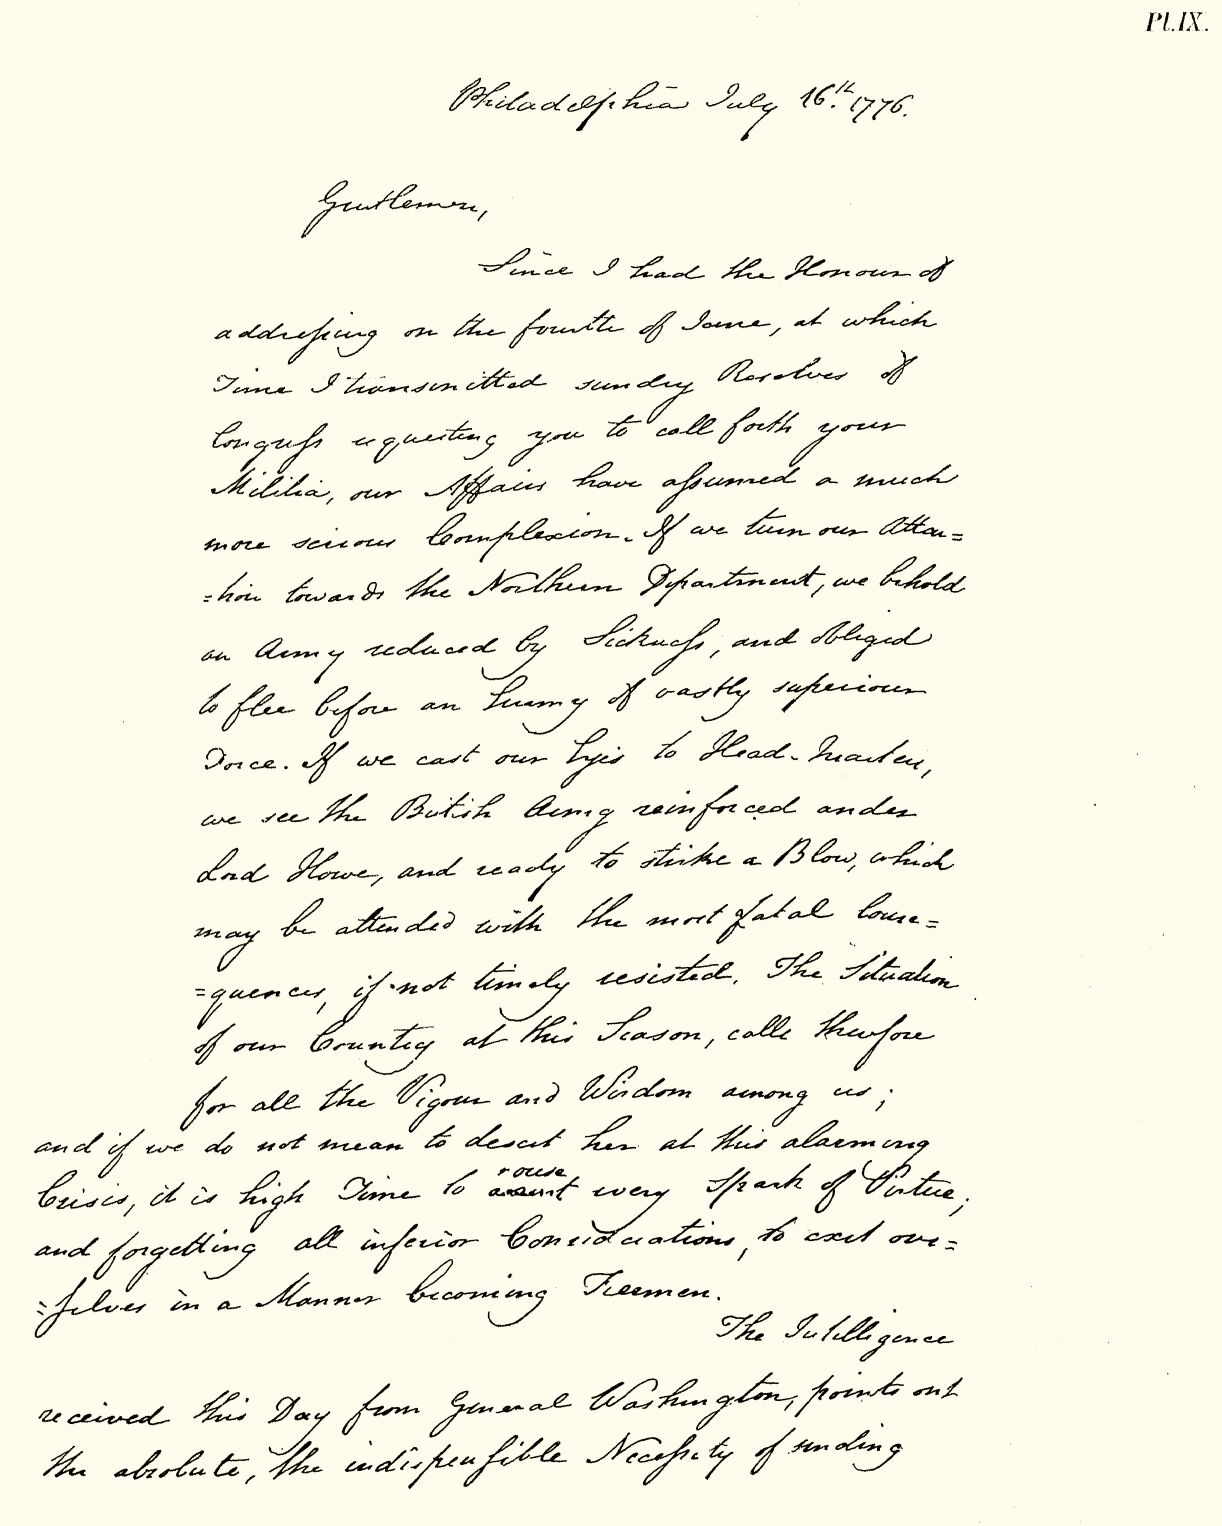 Pl.IX.
Philadelphia July 16th. 1776.
Gentlemen,
Since I had the Honour of
addressing on the fourth of June, at which
Time I transmitted sundry Resolves of
Congress requesting you to call forth your
Militia, our Affairs have assumed a much
more serious Complexion. If we turn our Atten=
=tion towards the Northern Department, we behold
an Army reduced by Sickness, and obliged
to flee before an Enemy of vastly superiour
Force. If we cast our Eyes to Head-Quarters,
we see the British Army reinforced under
Lord Howe, and ready to strike a Blow, which
may be attended with the most fatal Conse=
=quences, if not timely resisted. The Situation
of our Country at this Season, calls therefore
for all the Vigour and Wisdom among us;
and if we do not mean to desert her at this alarming
rouse
Crisis, it is high Time to every Spark of Virtue;
and forgetting all inferior Considerations, to exert our=
=selves in a Manner becoming Freemen.
The Intelligence
received this Day from General Washington, points out
the absolute, the indispensible Necessity of sending